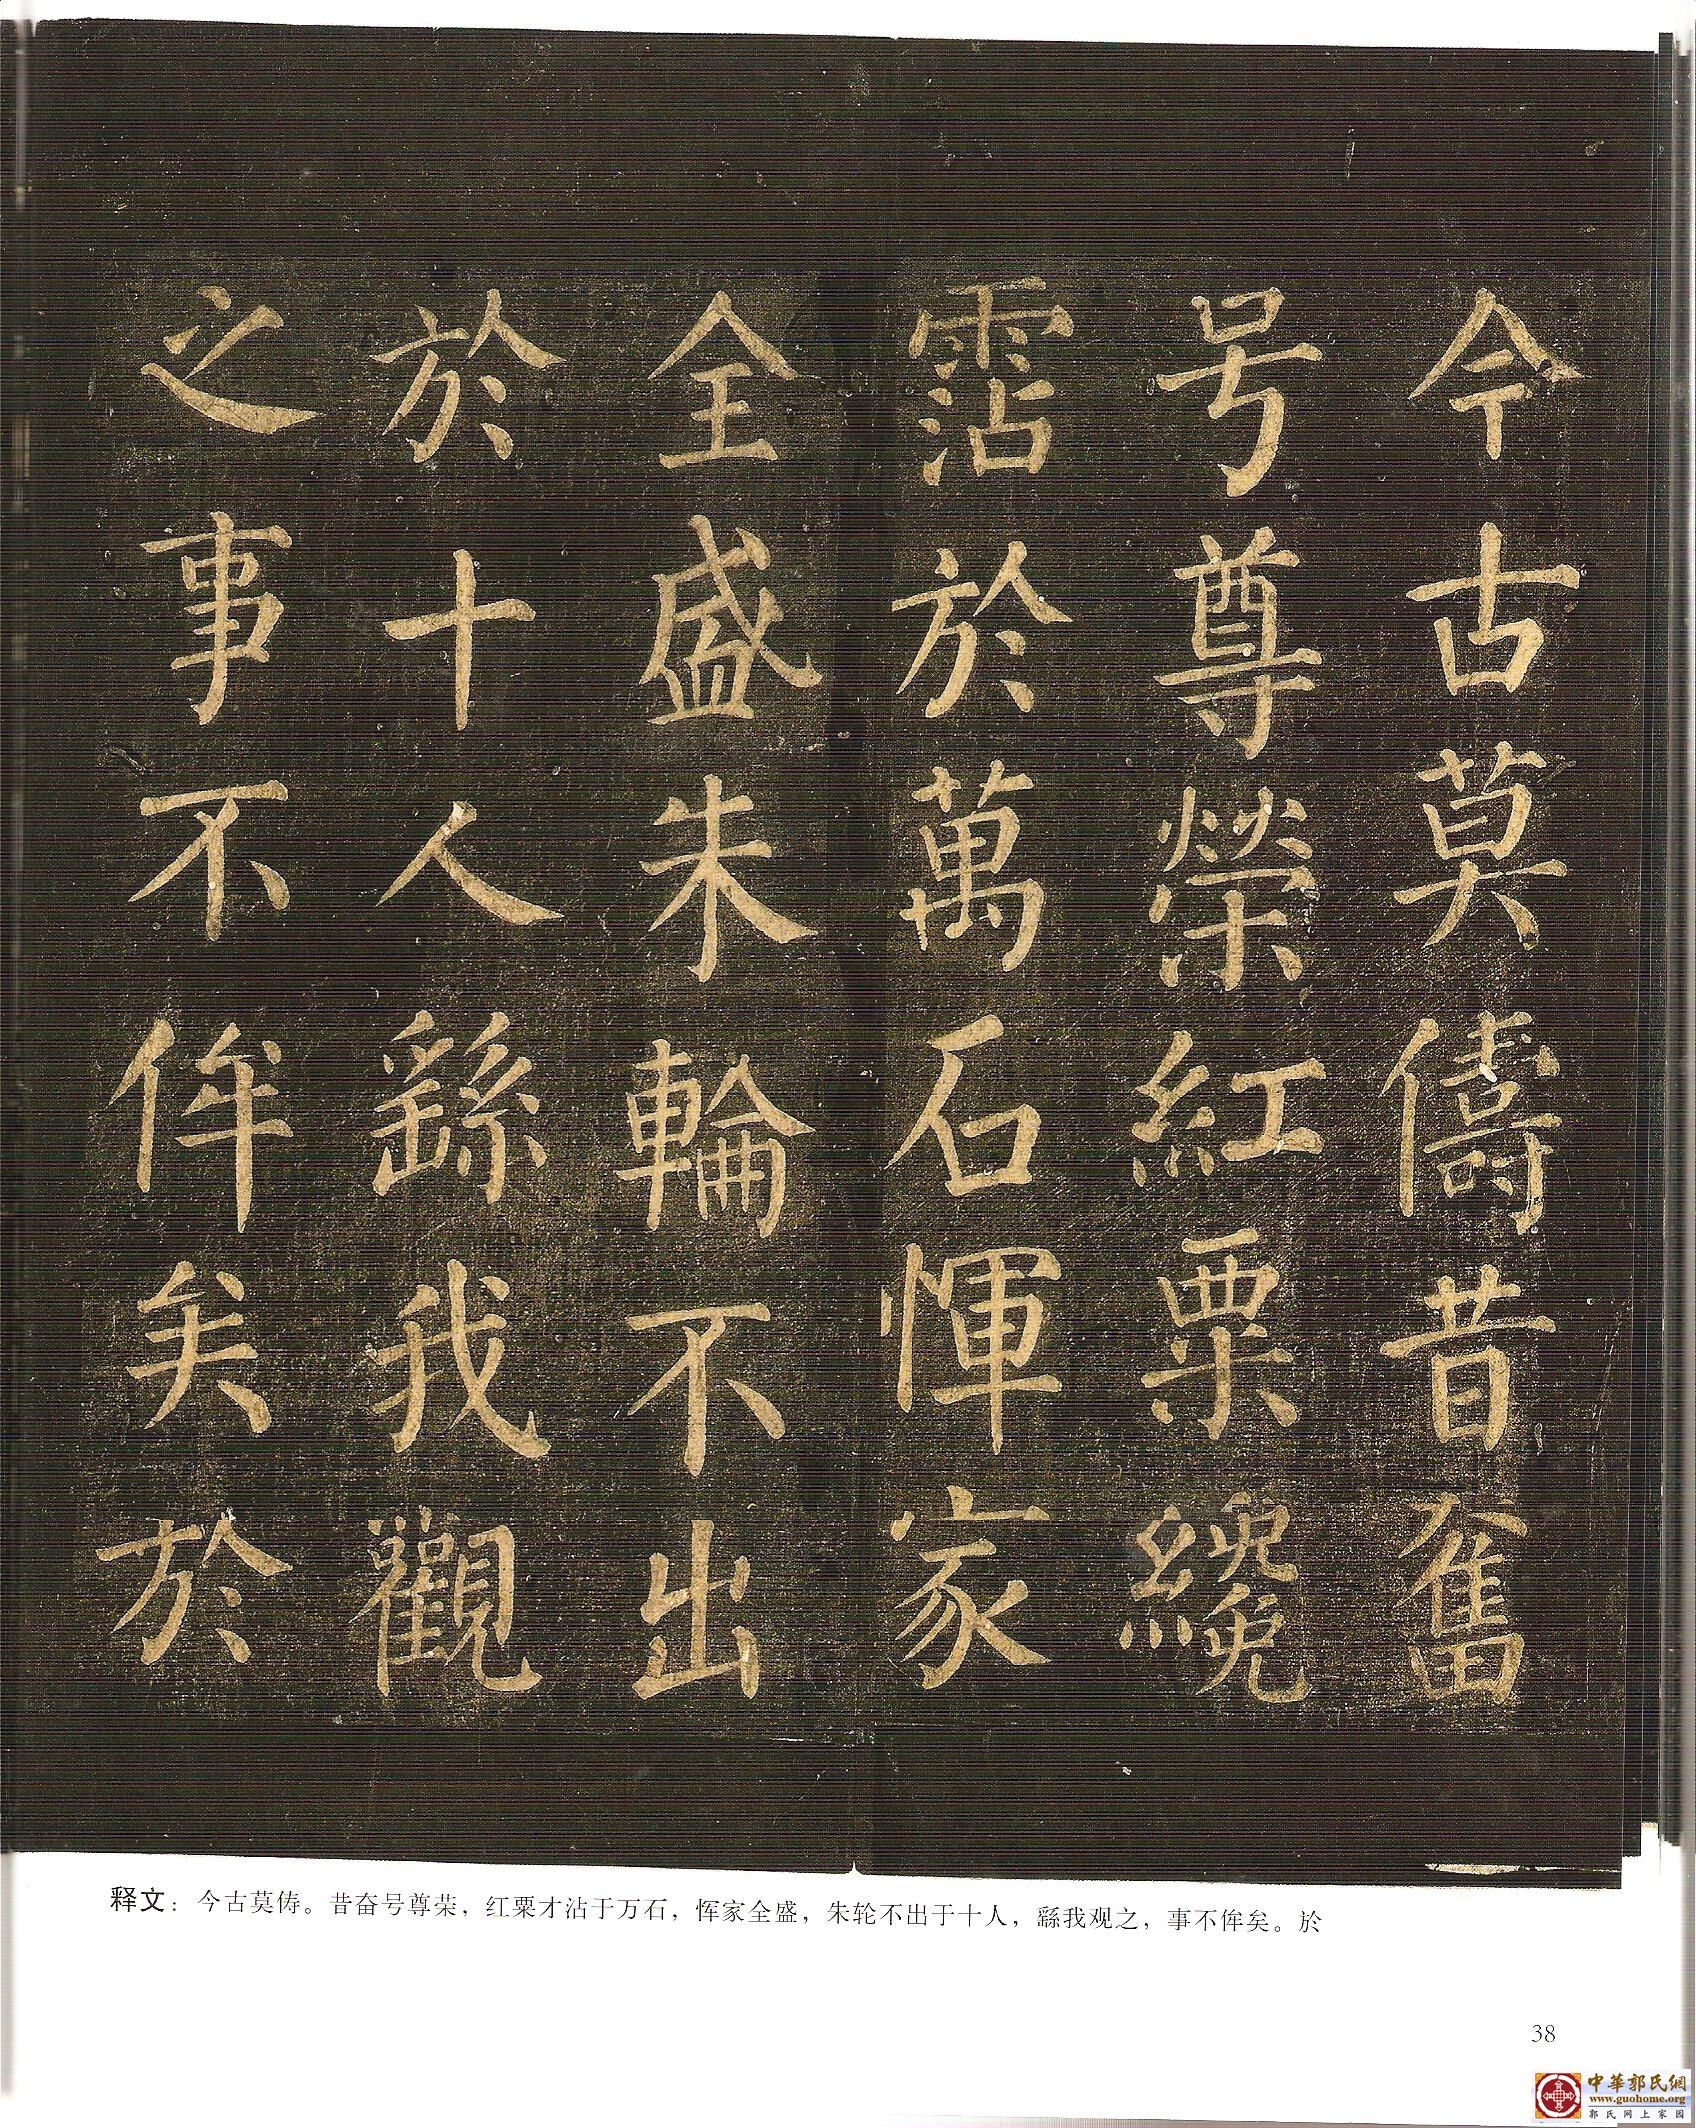 今古莫儔昔奮
号尊榮紅粟纔
霑於萬石惲家
全盛朱輪不出
於十人繇我觀
之事不侔矣於
释文：今古莫俦。昔奋号尊荣，红粟才沾于万石，恽家全盛，朱轮不出于十人，繇我观之，事不侔矣。於
38
中華郭氏網
www.guohome.org
郭氏网上家园